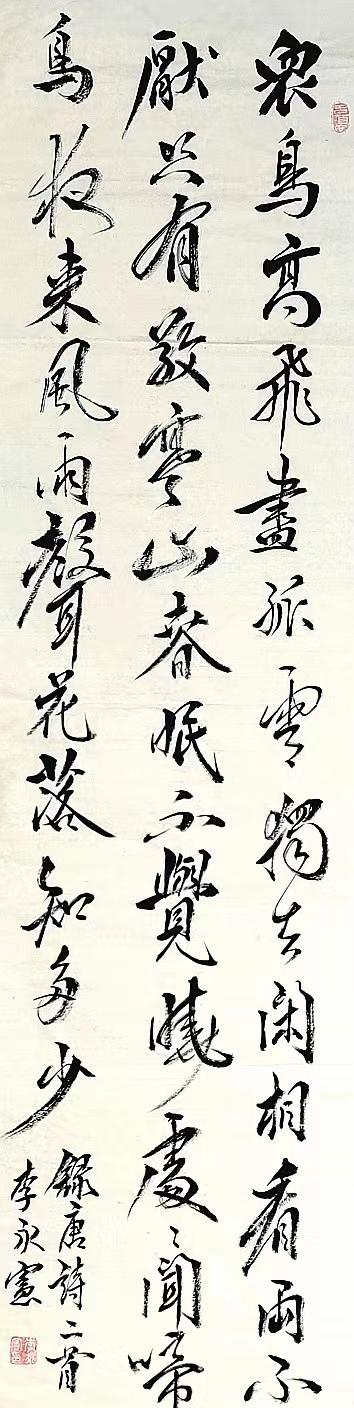 眾鳥高飛盡孤雲獨去閑相看兩不
厭只有敬亭山春眠不覺曉處々聞啼
鳥夜來風雨聲花落知多少
錄唐詩二首
李永憲